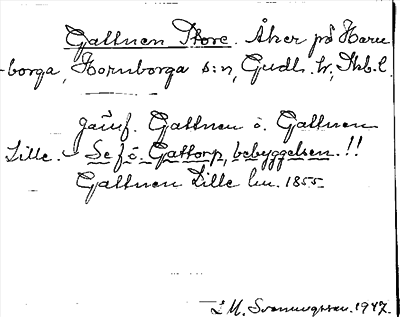 Gattnen Store. Åker på Horn
-borga, Hornborga s:n, Gudh. hr, Skb. l.
Jämf. Gattnen o. Gattnen
Lille. - Se f. ö. Gattorp, bebyggelsen.!!
Gattnen Lille lm. 1855
L M. Svanungsson. 1947.